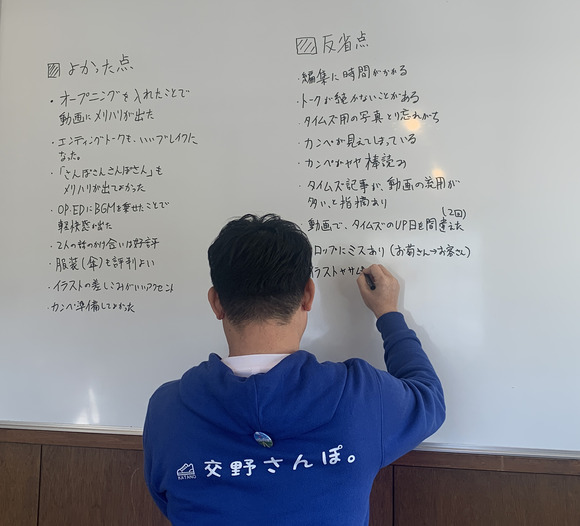 よかった点
・オープニングを入れたことで
動画にメリハリが出た
・エンディングトークも、いいブレイクに
なった。
・「さんぽさんさんぽさん」も
メリハリが出てよかった
・OP.EDにBGMを乗せたことで
軽快感が出た
・2人の掛け合いは好評
・服装(傘)も評判よい
・イラストの差しこみがいいアクセント
・カンペ準備してよかった
反省点
・編集に時間がかかる
・トークが続かないことがある
・タイムズ用の写真とり忘れがち
・カンペが見えてしまっている
・カンペがやや棒読み
・タイムズ記事が、動画の流用が
多い、と指摘あり
(2回)
動画で、タイムズのUP日を間違えた
ロップにミスあり(お菊さん→お客さん)
イラストやサム
交野さんぽ。
KATANO